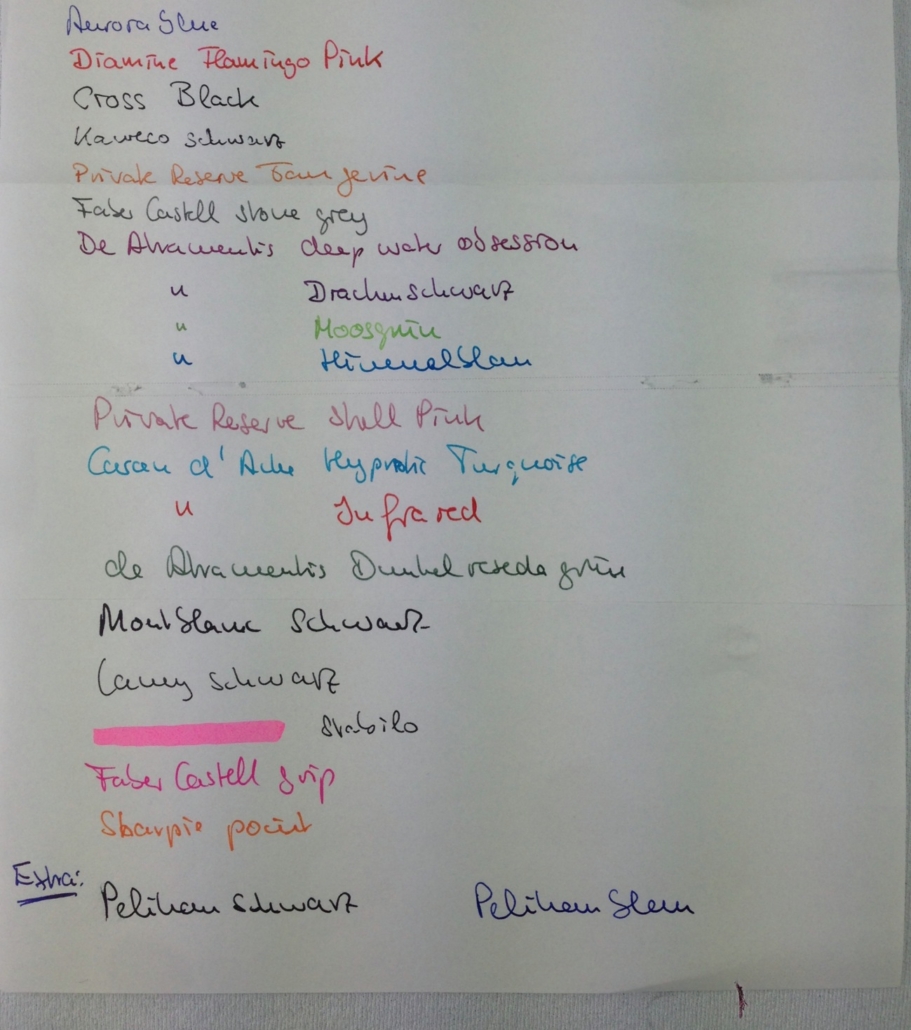 Aurora Blue
Diamine Flamingo Pink
Cross Black
Kaweco schwarz
Private Reserve Tangerine
Faber Castell stone grey
De Atramentis deep water obsession
" Drachenschwarz
" Moosgrün
" Himmelblau
Private Reserve Shell Pink
Caran d'Ache Hypnotic Turquoise
" Infrared
de Atramentis Dunkelresedagrün
Montblanc Schwarz
Lamy schwarz
Stabilo
Faber Castell grip
Sharpie point
Extra:
Pelikan Schwarz Pelikan blau